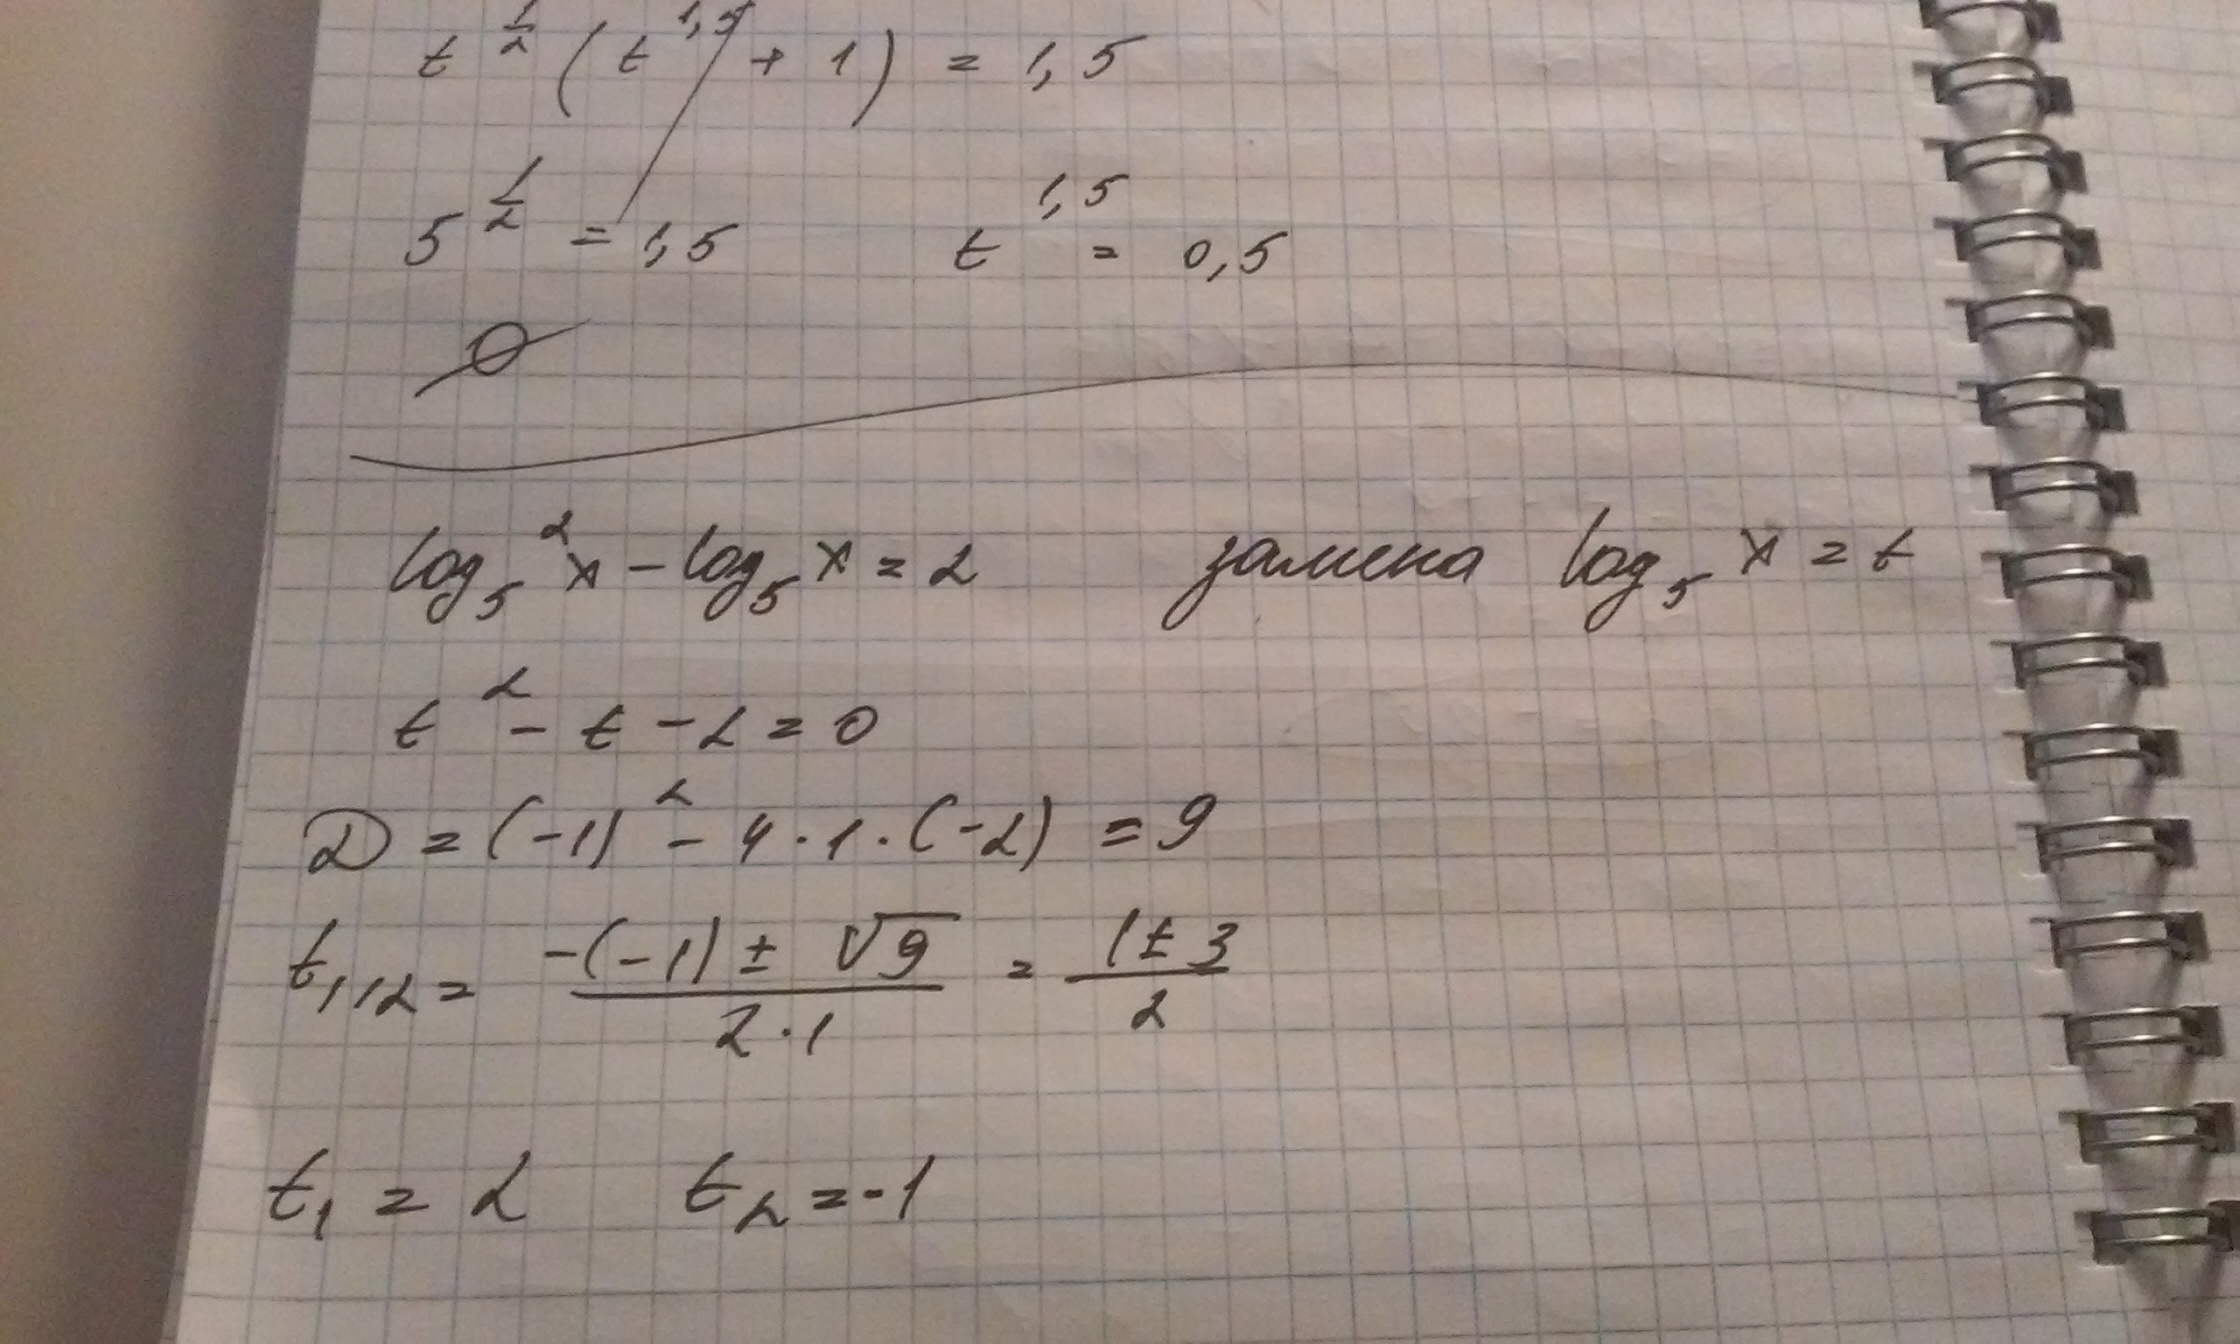 t^{1/2} (t^{1,5} + 1) = 1,5
5^{1/2} = 1,5 t^{1,5} = 0,5
∅
log₅²x - log₅ x = 2 замена log₅ x = t
t² - t - 2 = 0
D = (-1)² - 4 · 1 · (-2) = 9
t₁,₂ = (-(-1) ± √9) / (2 · 1) = (1 ± 3) / 2
t₁ = 2 t₂ = -1